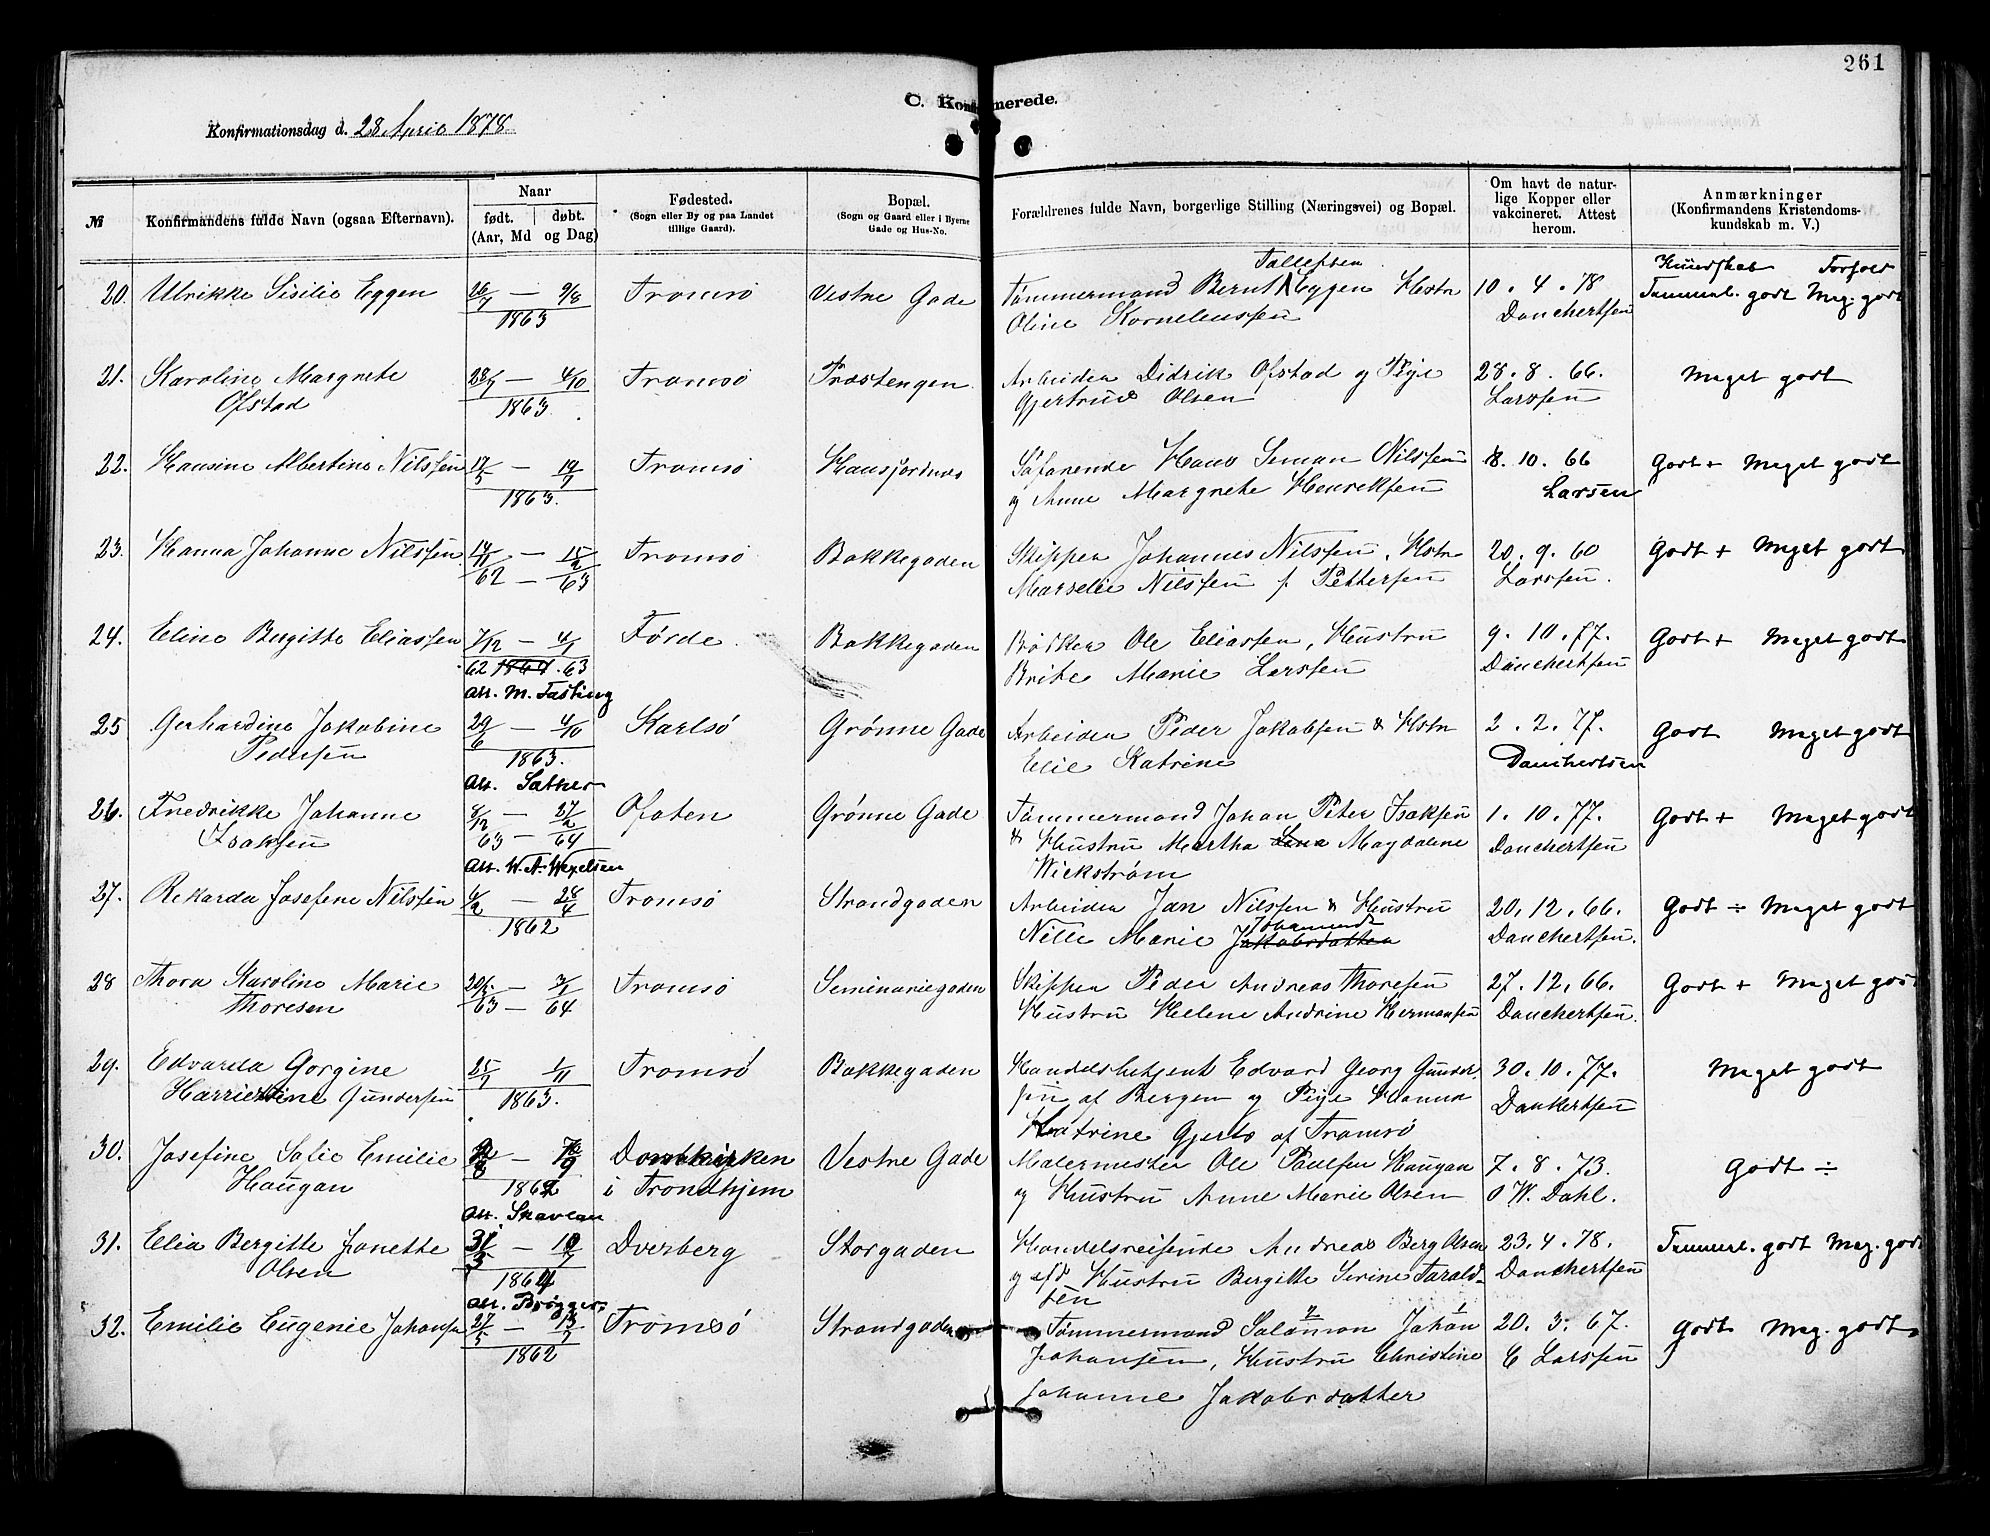 261
C. Konfirmerede.
Konfirmationsdag d. 28 April 1878
№
Konfirmandens fulde Navn (ogsaa Efternavn).
Naar
født. døbt.
(Aar, Md og Dag)
Fødested.
(Sogn eller By og paa Landet
tillige Gaard).
Bopæl.
(Sogn og Gaard eller i Byerne
Gade og Hus-No.
Forældrenes fulde Navn, borgerlige Stilling (Næringsvei) og Bopæl.
Om havt de natur-
lige Kopper eller
vakcineret. Attest
herom.
Anmærkninger
(Konfirmandens Kristendoms-
kundskab m. V.)
Kundskab Forhold
20. Ulrikke Sisilie Eggen 26/7 — 9/8 Tromsø Vestre Gade Tømmermand Bernt Tollefsen Eggen Hstr 10. 4. 78 Temmel. godt Meg. godt
1863 Oline Korneliussen Danchertsen
21. Karoline Margrete 28/7 — 4/10 Tromsø Præstengen Arbeider Didrik Ofstad og Pige 28. 8. 66. Meget godt
Ofstad 1863 Gjertrud Olsen Larssen
22. Hansine Albertine Nilssen 17/5 — 19/7 Tromsø Hansjordnes Søfarende Hans Simon Nilssen 8. 10. 66 Godt + Meget godt
1863. og Anne Margrete Henriksen Larsen
23. Hanna Johanne Nilssen 14/11 — 15/2 Tromsø Bakkegaden Skipper Johannes Nilssen, Hstr 20. 9. 60 Godt + Meget godt
62 — 63 Marselie Nilssen f. Pettersen Larssen.
24. Eline Birgitte Eliassen 7/12 — 4/1 Førde Bakkegaden Bødker Ole Eliassen, Hustru 9. 10. 77. Godt + Meget godt
62 1864 . 63 Brite Marie Larssen Danchertsen
Att. M. Tasting
25 Gerhardine Jakobine 29/6 — 4/10 Karlsø Grønne Gade Arbeider Peder Jakobsen & Hstr 2. 2. 77. Godt Meget godt
Pedersen 1863. Elie Katrine Danchertsen
Att. Sather
26. Fredrikke Johanne 8/12 — 27/2 Ofoten Grønne Gade Tømmermand Johan Peter Isaksen 1. 10. 77. Godt + Meget godt
Isaksen 63 — 64 & Hustru Martha Lena Magdalene Danchertsen
Att. W. A. Wexelsen Wickstrøm
27. Rikarda Josefine Nilssen 6/2 — 28/4 Tromsø Strandgaden Arbeider Jan Nilssen & Hustru 20. 12. 66. Godt ÷ Meget godt
1862 Nille Marie Jakobsdatter Danchertsen.
28 Thora Karoline Marie — 3/1 Tromsø Seminariegaden Skipper Peder Andreas Thoresen 27. 12. 66. Godt + Meget godt
Thoresen 63 — 64 Hustru Helene Andrine Hermansen Danchertsen.
29. Edvarda Gorgine 25/7 1/11 Tromsø Bakkegaden Handelsbetjent Edvard Georg Gunder- 30. 10. 77. Meget godt
Harriettine Gundersen 1863. sen af Bergen og Pige Hanna Dankertsen
Katrine Gjerts af Tromsø
30. Josefine Sofie Emilie Domkirken Vestre Gade Malermester Ole Paulsen Haugan 7. 8. 73. Godt ÷
Haugan 1862 i Trondhjem og Hustru Anne Marie Olsen O W. Dahl.
Att. Skavlan
31. Elia Bergitte Janette 31/3 — Dverberg Storgaden Handelsreisende Andreas Berg Olsen 23. 4. 78. Temmel. godt Meg. godt
Olsen 1864 og afd Hustru Bergitte Serine Tarald- Danchertsen
Att. Brøgger sen
32. Emilie Eugenie Johansen 27/5 — 13/7 Tromsø Strandgaden Tømmermand Salamon Johan 20. 3. 67. Godt Meg. godt
1862 Johansen, Hustru Christine C Larssen
Johanne Jakobsdatter